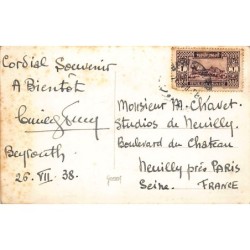 Cordial Souvenir
A Bientôt
Beyrouth
26. VII. 38.
Monsieur M. Chavet
Studios de Neuilly.
Boulevard du Château
Neuilly près Paris
Seine. FRANCE